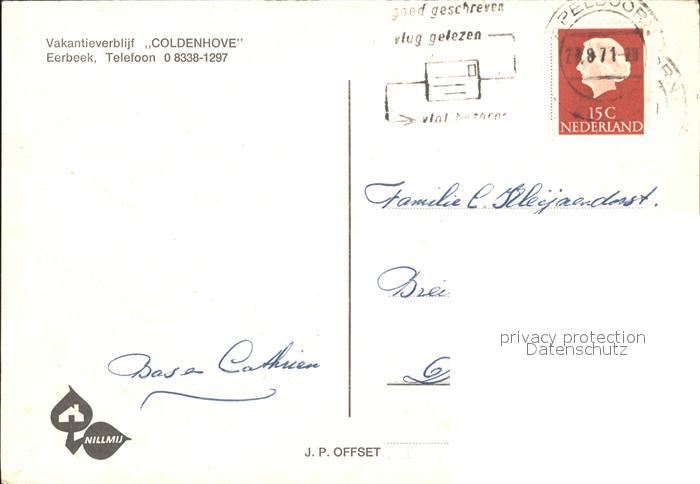 Vakantieverblijf „COLDENHOVE”
Eerbeek, Telefoon 0 8338-1297
goed geschreven
vlug gelezen
vlot bezorgd
PELDOORN
28.8.71
15 C
NEDERLAND
Familie C. Kleijaendorst.
Brei
privacy protection
Datenschutz
Bas en Cathrien
NILLMIJ
J. P. OFFSET